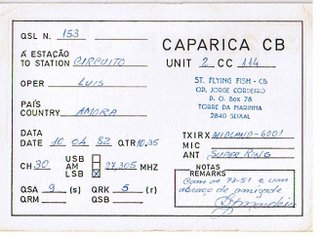 QSL N. 153
À ESTAÇÃO
TO STATION CIRCUITO
OPER LUIS
PAÍS
COUNTRY AMORA
DATA
DATE 10 04 82 QTR 10,35
CH 30 USB
AM
LSB 27,305 MHZ
QSA 9 (s) QRK 5 (r)
QRM QSB
CAPARICA CB
UNIT 2 CC 114
ST. FLYING FISH - CB
OP. JORGE CORDEIRO
P. O. BOX 78
TORRE DA MARINHA
2840 SEIXAL
TXIRX MIDLAND-6001
MIC
ANT SUPER KING
NOTAS
REMARKS
Com os 73-51 e um
abraço de amizade